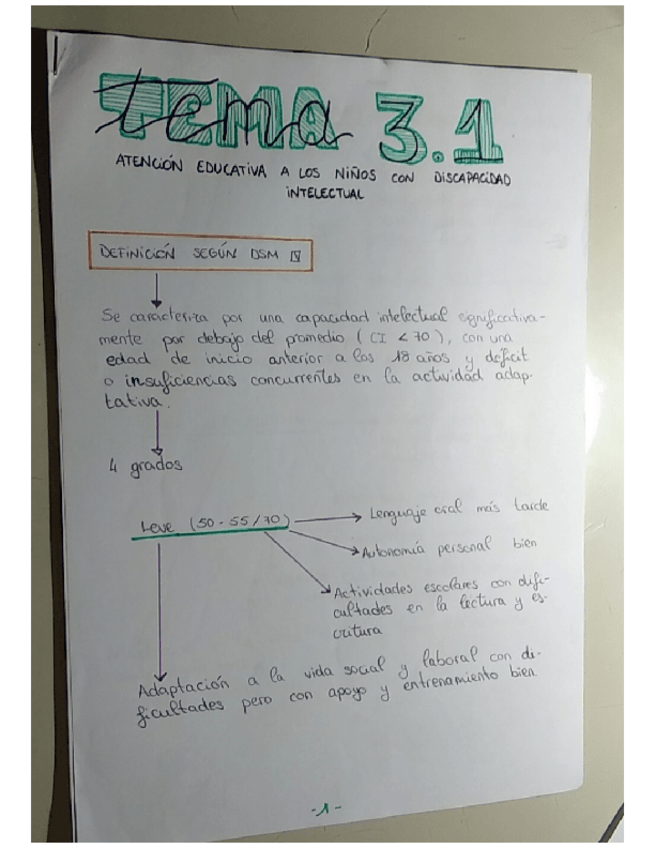 TEMA 3.1
ATENCIÓN EDUCATIVA A LOS NIÑOS CON DISCAPACIDAD
INTELECTUAL
DEFINICIÓN SEGÚN DSM IV
Se caracteriza por una capacidad intelectual significativa-
mente por debajo del promedio (CI < 70), con una
edad de inicio anterior a los 18 años y déficit
o insuficiencias concurrentes en la actividad adap-
tativa.
4 grados
Leve (50-55/70)
Lenguaje oral más tarde
Autonomía personal bien
Actividades escolares con difi-
cultades en la lectura y es-
critura
Adaptación a la vida social y laboral con di-
ficultades pero con apoyo y entrenamiento bien
-1-